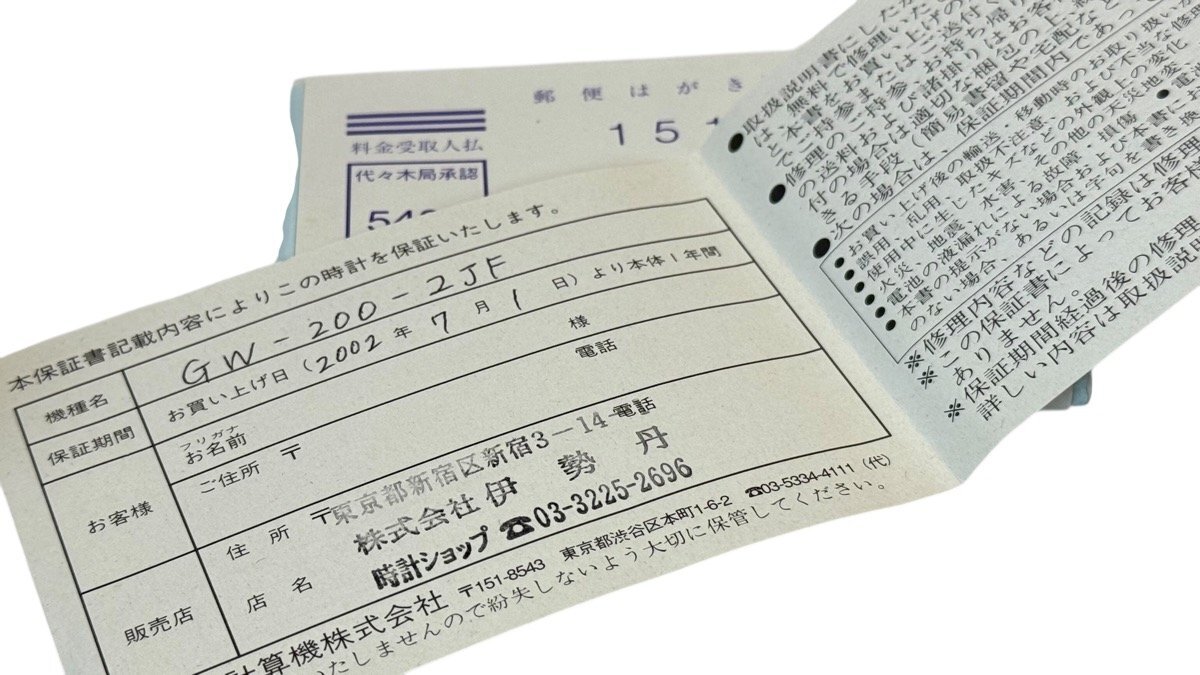 郵便はがき
料金受取人払
151
代々木局承認
本保証書記載内容によりこの時計を保証いたします。
機種名 GW-200-2JF
保証期間 お買い上げ日(2002年7月1日)より本体1年間
お客様
フリガナ
お名前 様
ご住所 〒 電話
販売店
住所 〒 東京都新宿区新宿3-14- 電話
店名 株式会社 伊勢丹
時計ショップ ☎03-3225-2696
計算機株式会社 〒151-8543 東京都渋谷区本町1-6-2 ☎03-5334-4111(代)
いたしませんので紛失しないよう大切に保管してください。
取扱説明書にした
は、無料で修理いた
●修理のご持参、お持ち帰り
の送料および諸掛りはお客
付の場合は適切な梱包の上、
きる手段(簡易書留や宅配など
●次の場合は、保証期間内であっ
●お買い上げ後の輸送、移動時のお取り扱い
●誤用、乱用、取扱不注意
●使用中に生じたキズなどの外観上の変化
●火災、地震、水害、その他の天災地変
●電池の液漏れによる故障、損傷
●本書の提示がない場合および本書
のない場合、あるいは字句を書き換
※修理内容などの記録は修理
※この保証書によってお客
ありません。
※保証期間経過後の修理
詳しい内容は取扱説